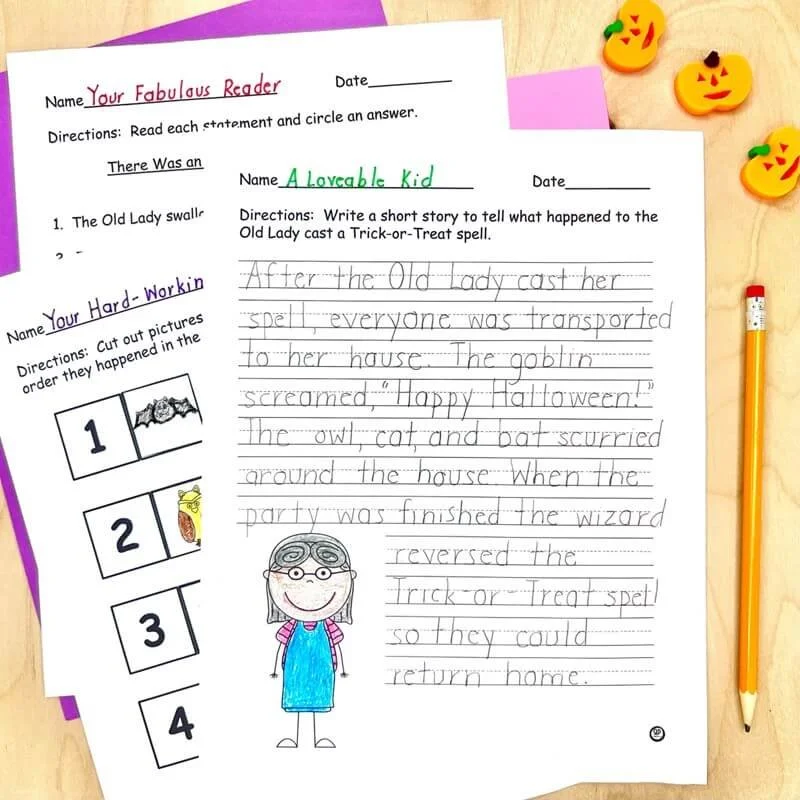 Name Your Fabulous Reader Date
Directions: Read each statement and circle an answer.
There Was an
1. The Old Lady swall
Name Your Hard-Workin
Directions: Cut out pictures
order they happened in the
1
2
3
4
Name A Loveable Kid Date
Directions: Write a short story to tell what happened to the
Old Lady cast a Trick-or-Treat spell.
After the Old Lady cast her
spell, everyone was transported
to her house. The goblin
screamed, "Happy Halloween!"
The owl, cat, and bat scurried
around the house. When the
party was finished the wizard
reversed the
Trick-or-Treat spell
so they could
return home.